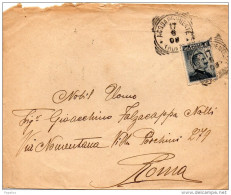 17
Nobil Uomo
Sig. Gioacchino Falzacappa Netti
Via Nomentana Villa Cecchini 279
Roma